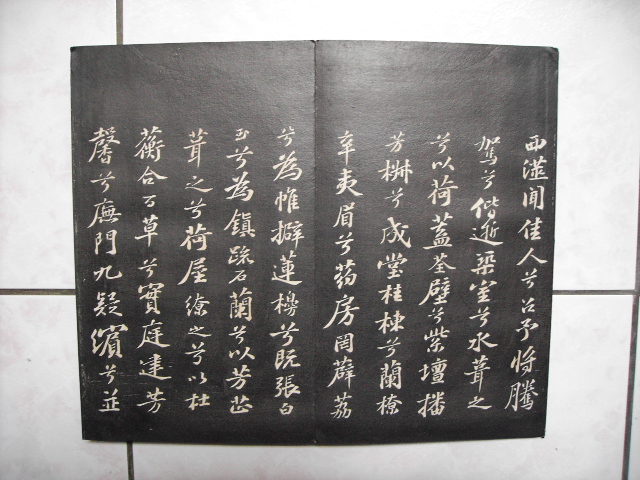 西澨聞佳人兮召予將騰
駕兮偕逝築室兮水葺之
兮以荷蓋荃壁兮紫壇播
芳椒兮成堂桂棟兮蘭橑
辛夷眉兮葯房罔薜荔
兮為帷擗蓮櫋兮既張白
玉兮為鎮疏石蘭兮以芳芷
葺之兮荷屋繚之兮以杜
蘅合百草兮實庭建芳
馨兮廡門九疑繽兮並